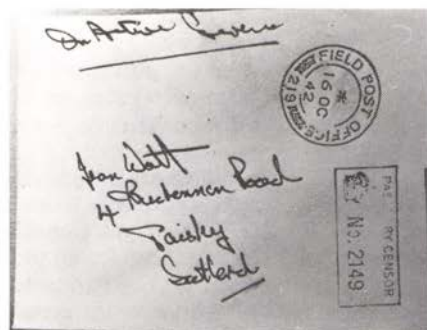 On Active Service
FIELD POST OFFICE
219
16 OC
42
Jean Watt
4
Road
Paisley
Scotland
BY CENSOR
No. 2149